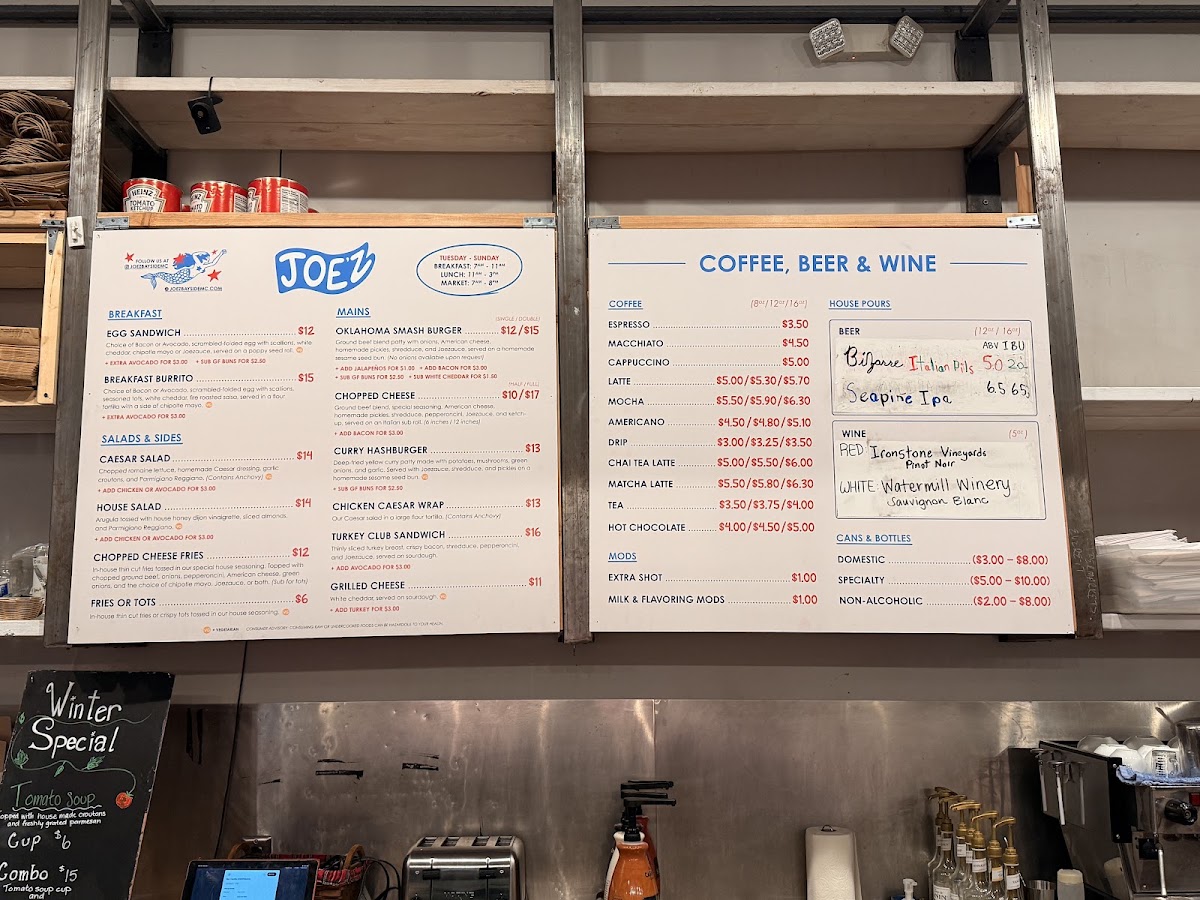 HEINZ
TOMATO
KETCHUP
FOLLOW US AT
@JOEZBAYSIDEMC
@JOEZBAYSIDEMC.COM
JOE'Z
TUESDAY - SUNDAY
BREAKFAST: 7AM - 11AM
LUNCH: 11AM - 3PM
MARKET: 7AM - 8PM
BREAKFAST
EGG SANDWICH $12
Choice of Bacon or Avocado, scrambled-folded egg with scallions, white
cheddar, chipotle mayo or Joezauce, served on a poppy seed roll.
+ EXTRA AVOCADO FOR $3.00 + SUB GF BUNS FOR $2.50
BREAKFAST BURRITO $15
Choice of Bacon or Avocado, scrambled-folded egg with scallions,
seasoned tots, white cheddar, fire roasted salsa, served in a flour
tortilla with a side of chipotle mayo.
+ EXTRA AVOCADO FOR $3.00
SALADS & SIDES
CAESAR SALAD $14
Chopped romaine lettuce, homemade Caesar dressing, garlic
croutons, and Parmigiano Reggiano. (Contains Anchovy)
+ ADD CHICKEN OR AVOCADO FOR $3.00
HOUSE SALAD $14
Arugula tossed with house honey dijon vinaigrette, sliced almonds,
and Parmigiano Reggiano.
+ ADD CHICKEN OR AVOCADO FOR $3.00
CHOPPED CHEESE FRIES $12
In-house thin cut fries tossed in our special house seasoning. Topped with
chopped ground beef, onions, pepperoncini, American cheese, green
onions, and the choice of chipotle mayo, Joezauce, or both. (Sub for tots)
FRIES OR TOTS $6
In-house thin cut fries or crispy tots tossed in our house seasoning.
MAINS
(SINGLE / DOUBLE)
OKLAHOMA SMASH BURGER $12/$15
Ground beef blend patty with onions, American cheese,
homemade pickles, shredduce, and Joezauce, served on a homemade
sesame seed bun. (No onions available upon request)
+ ADD JALAPEÑOS FOR $1.00 + ADD BACON FOR $3.00
+ SUB GF BUNS FOR $2.50 + SUB WHITE CHEDDAR FOR $1.50
(HALF / FULL)
CHOPPED CHEESE $10/$17
Ground beef blend, special seasoning, American cheese,
homemade pickles, shredduce, pepperoncini, Joezauce, and ketch-
up, served on an Italian sub roll. (6 inches / 12 inches)
+ ADD BACON FOR $3.00
CURRY HASHBURGER $13
Deep-fried yellow curry patty made with potatoes, mushrooms, green
onions, and garlic. Served with Joezauce, shredduce, and pickles on a
homemade sesame seed bun.
+ SUB GF BUN FOR $2.50
CHICKEN CAESAR WRAP $13
Our Caesar salad in a large flour tortilla. (Contains Anchovy)
TURKEY CLUB SANDWICH $16
Thinly sliced turkey breast, crispy bacon, shredduce, pepperoncini,
and Joezauce, served on sourdough.
+ ADD AVOCADO FOR $3.00
GRILLED CHEESE $11
White cheddar, served on sourdough.
+ ADD TURKEY FOR $3.00
VG = VEGETARIAN CONSUMER ADVISORY: CONSUMING RAW OR UNDERCOOKED FOODS CAN BE HAZARDOUS TO YOUR HEALTH.
COFFEE, BEER & WINE
COFFEE (8oz/12oz/16oz)
ESPRESSO $3.50
MACCHIATO $4.50
CAPPUCCINO $5.00
LATTE $5.00/$5.30/$5.70
MOCHA $5.50/$5.90/$6.30
AMERICANO $4.50/$4.80/$5.10
DRIP $3.00/$3.25/$3.50
CHAI TEA LATTE $5.00/$5.50/$6.00
MATCHA LATTE $5.50/$5.80/$6.30
TEA $3.50/$3.75/$4.00
HOT CHOCOLATE $4.00/$4.50/$5.00
MODS
EXTRA SHOT $1.00
MILK & FLAVORING MODS $1.00
HOUSE POURS
BEER (12oz / 16oz)
ABV IBU
Bizarre Italian Pils 5.0 20
Seapine Ipa 6.5 65
WINE (5oz)
RED: Ironstone Vineyards
Pinot Noir
WHITE: Watermill Winery
Sauvignon Blanc
CANS & BOTTLES
DOMESTIC ($3.00 – $8.00)
SPECIALTY ($5.00 – $10.00)
NON-ALCOHOLIC ($2.00 – $8.00)
Winter
Special
Tomato Soup
topped with house made croutons
and freshly grated parmesan
Cup $6
Combo $15
Tomato soup cup
and